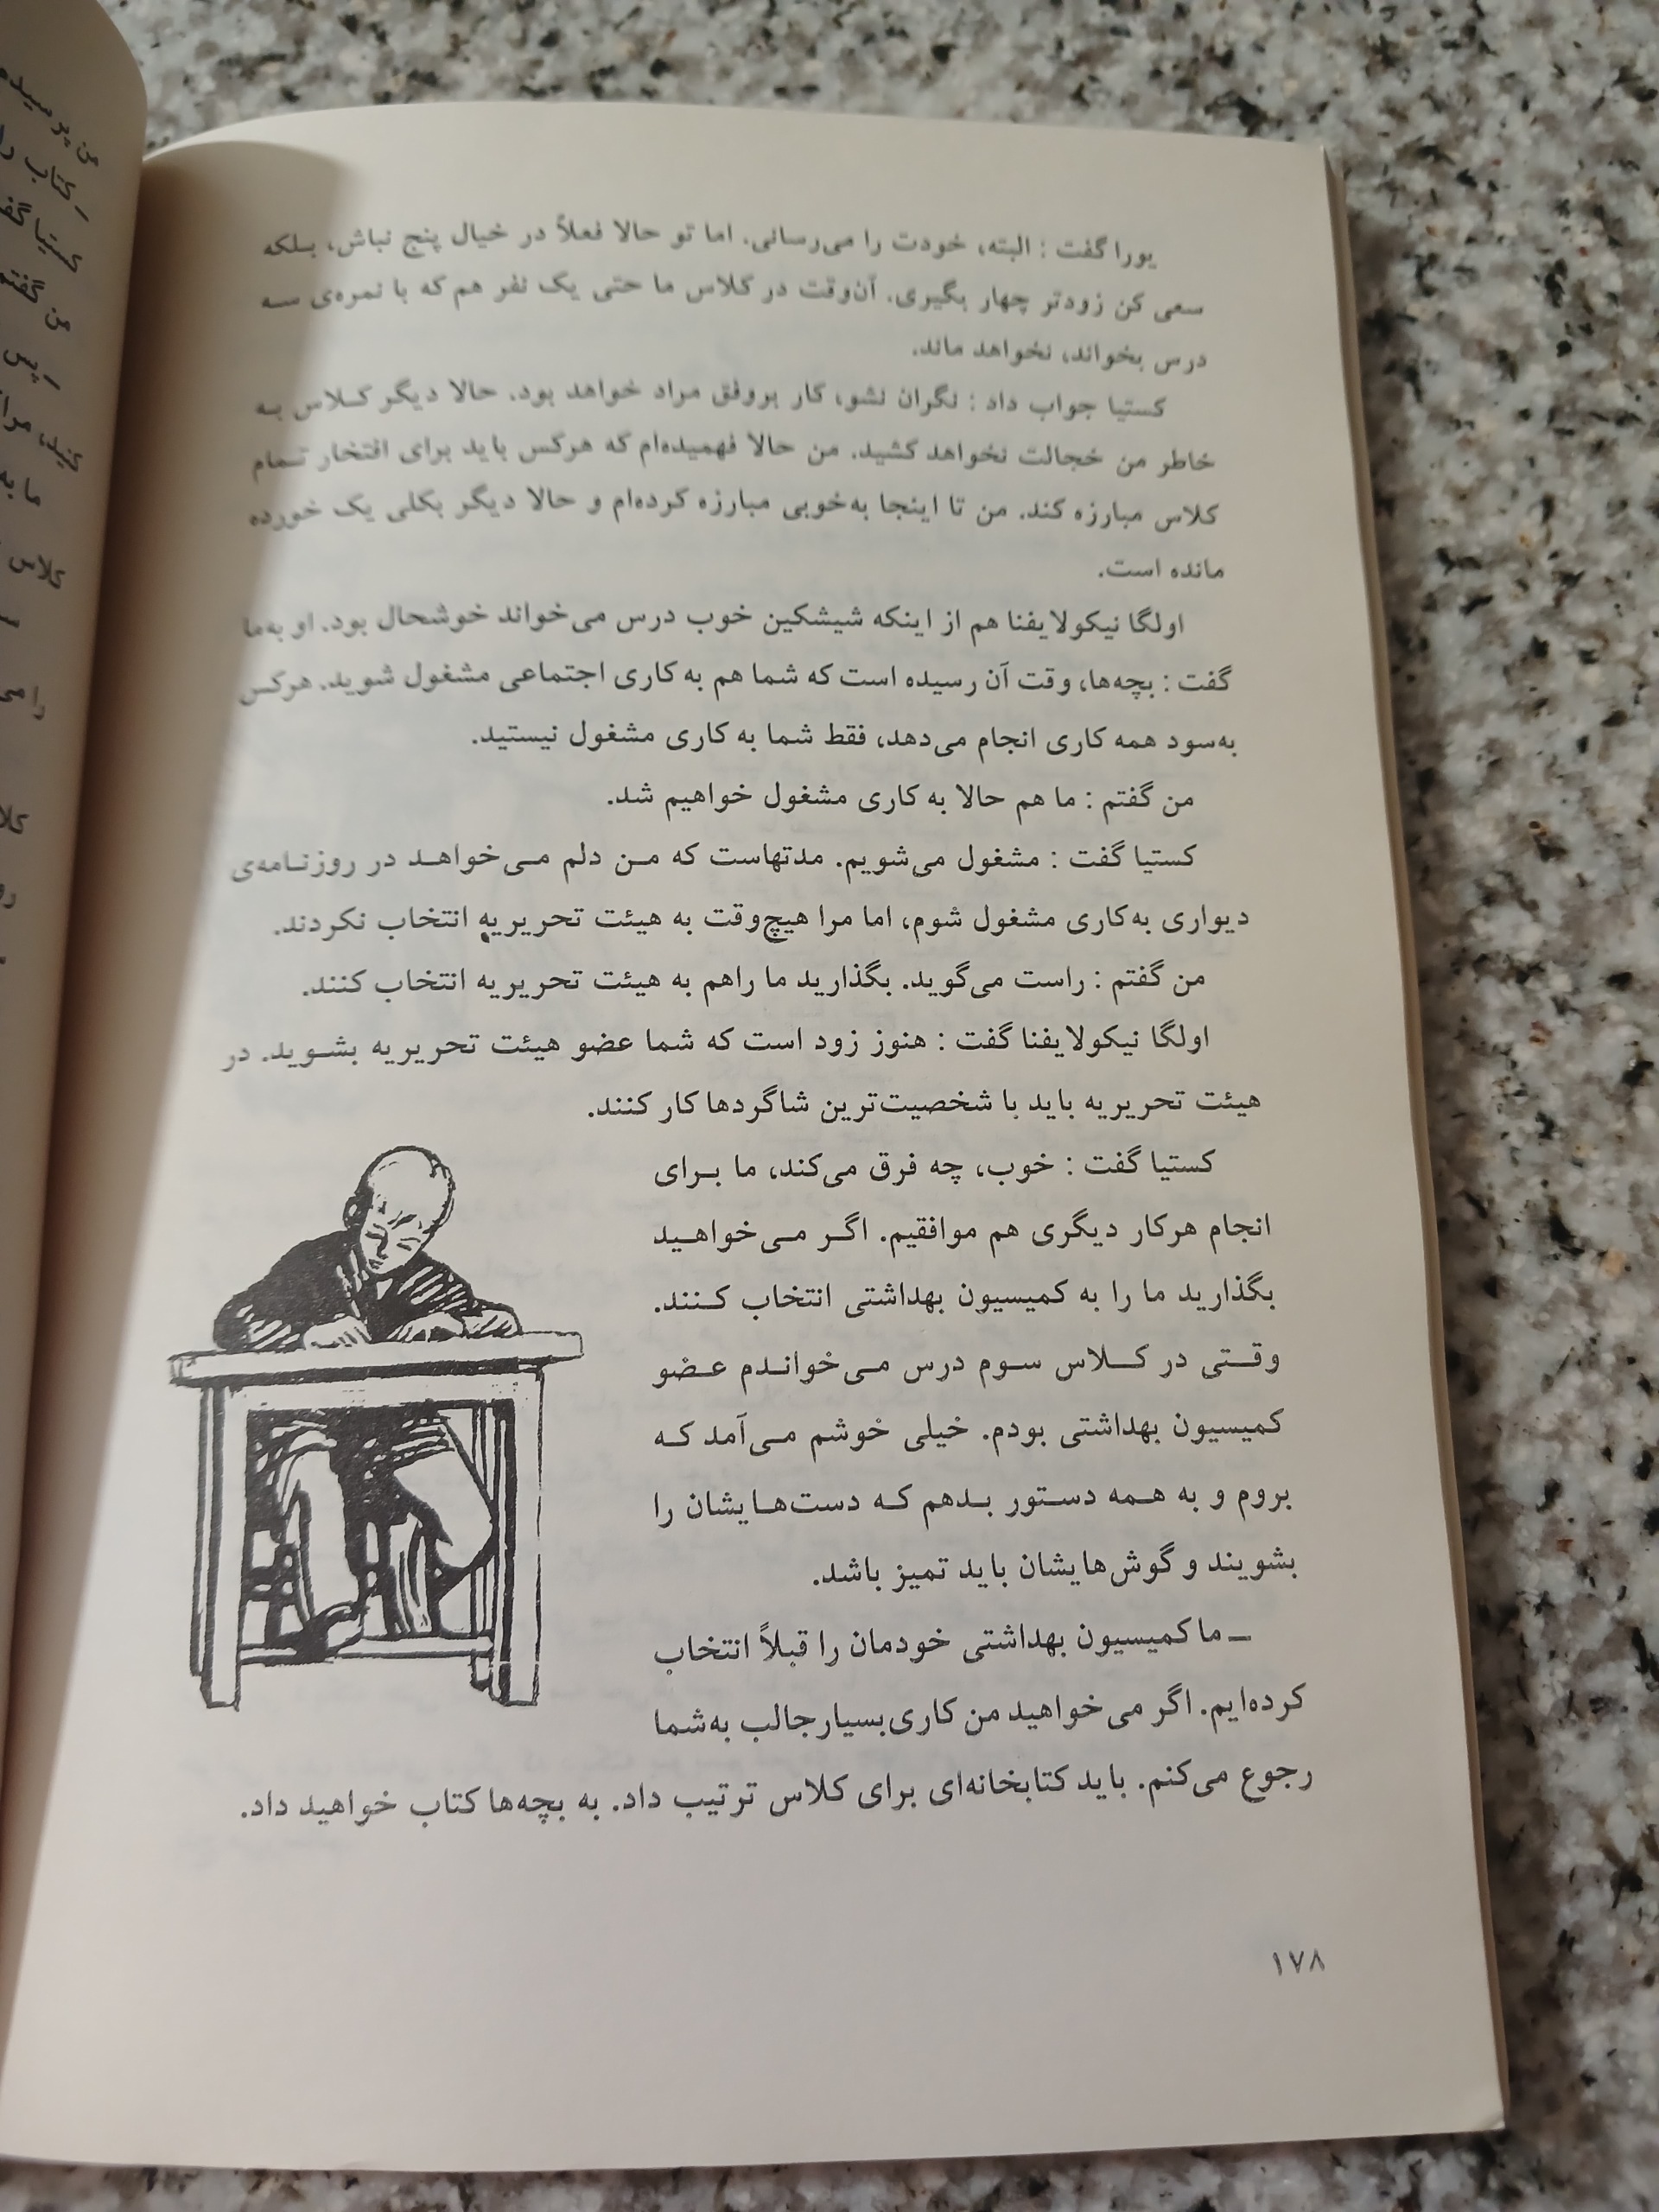 یورا گفت : البته، خودت را می‌رسانی. اما تو حالا فعلاً در خیال پنج نباش، بلکه
سعی کن زودتر چهار بگیری. آن‌وقت در کلاس ما حتی یک نفر هم که با نمره‌ی سه
درس بخواند، نخواهد ماند.
کستیا جواب داد : نگران نشو، کار بروفق مراد خواهد بود. حالا دیگر کلاس به
خاطر من خجالت نخواهد کشید. من حالا فهمیده‌ام که هرکس باید برای افتخار تمام
کلاس مبارزه کند. من تا اینجا به‌خوبی مبارزه کرده‌ام و حالا دیگر بکلی یک خورده
مانده است.
اولگا نیکولایفنا هم از اینکه شیشکین خوب درس می‌خواند خوشحال بود. او به‌ما
گفت : بچه‌ها، وقت آن رسیده است که شما هم به کاری اجتماعی مشغول شوید. هرکس
به‌سود همه کاری انجام می‌دهد، فقط شما به کاری مشغول نیستید.
من گفتم : ما هم حالا به کاری مشغول خواهیم شد.
کستیا گفت : مشغول می‌شویم. مدتهاست که من دلم می‌خواهد در روزنامه‌ی
دیواری به‌کاری مشغول شوم، اما مرا هیچ‌وقت به هیئت تحریریه انتخاب نکردند.
من گفتم : راست می‌گوید. بگذارید ما راهم به هیئت تحریریه انتخاب کنند.
اولگا نیکولایفنا گفت : هنوز زود است که شما عضو هیئت تحریریه بشوید. در
هیئت تحریریه باید با شخصیت‌ترین شاگردها کار کنند.
کستیا گفت : خوب، چه فرق می‌کند، ما برای
انجام هرکار دیگری هم موافقیم. اگر می‌خواهید
بگذارید ما را به کمیسیون بهداشتی انتخاب کنند.
وقتی در کلاس سوم درس می‌خواندم عضو
کمیسیون بهداشتی بودم. خیلی خوشم می‌آمد که
بروم و به همه دستور بدهم که دست‌هایشان را
بشویند و گوش‌هایشان باید تمیز باشد.
ــ ما کمیسیون بهداشتی خودمان را قبلاً انتخاب
کرده‌ایم. اگر می‌خواهید من کاری بسیار جالب به‌شما
رجوع می‌کنم. باید کتابخانه‌ای برای کلاس ترتیب داد. به بچه‌ها کتاب خواهید داد.
۱۷۸
کستیا
من گفتم
ــ پس
ما به
کلاس